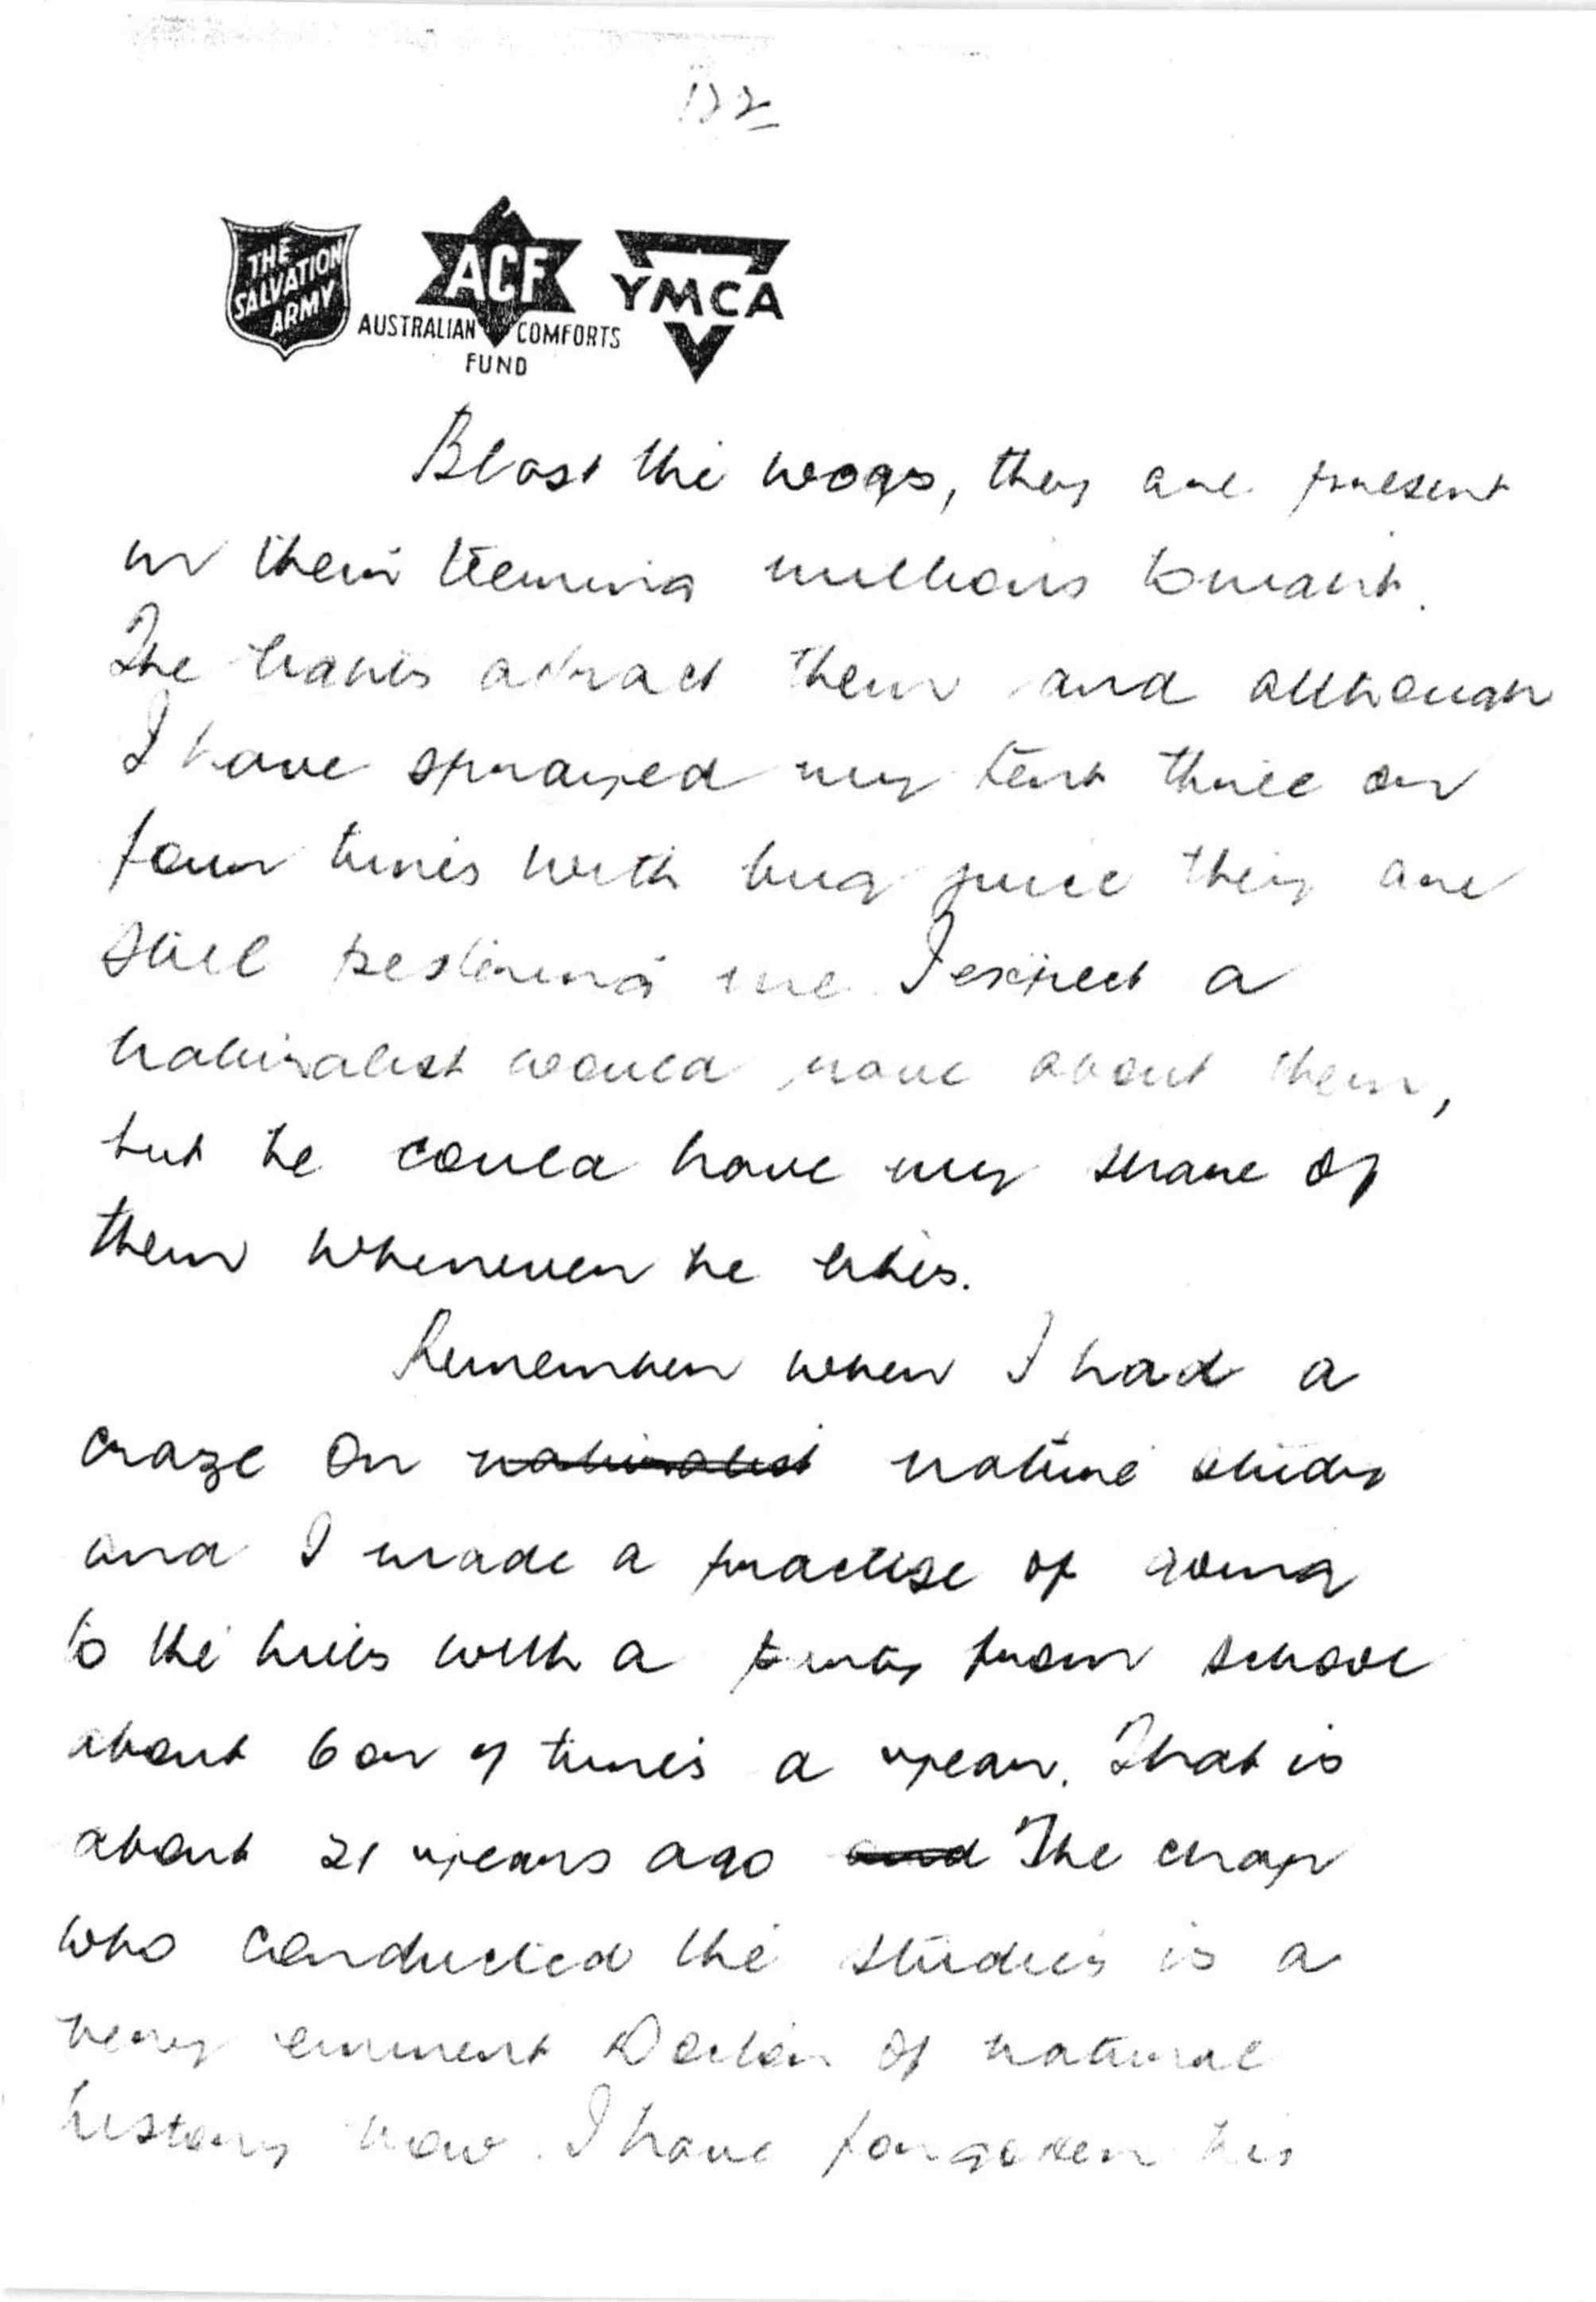 122
THE SALVATION ARMY
ACF
AUSTRALIAN COMFORTS FUND
YMCA
Blast the wogs, they are present
in their teeming millions tonight.
The lights attract them and although
I have sprayed my tent three or
four times with bug juice they are
still pestering me. I expect a
naturalist would rave about them,
but he could have my share of
them whenever he likes.
Remember when I had a
craze on naturalist nature study
and I made a practise of going
to the hills with a party from school
about 6 or 7 times a year. That is
about 21 years ago and The chap
who conducted the studies is a
very eminent Doctor of natural
history now. I have forgotten his